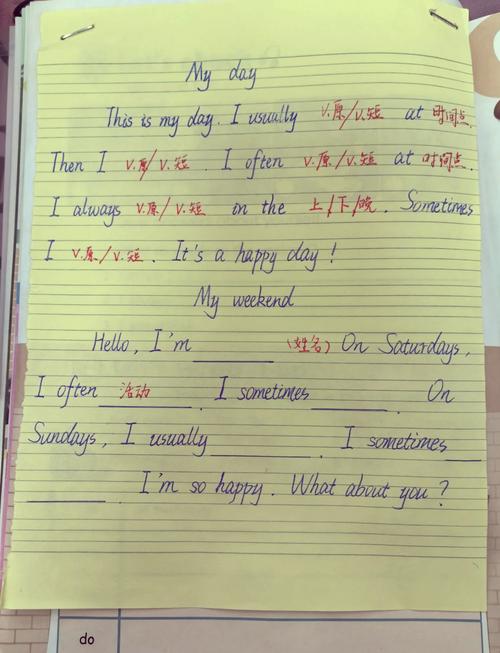 My day
This is my day. I usually v.原/v.短 at 时间点.
Then I v.原/v.短. I often v.原/v.短 at 时间点.
I always v.原/v.短 in the 上/下/晚. Sometimes
I v.原/v.短. It's a happy day!
My weekend
Hello, I'm________ (姓名) On Saturdays,
I often 活动________. I sometimes________. On
Sundays, I usually________. I sometimes___
________. I'm so happy. What about you?
do